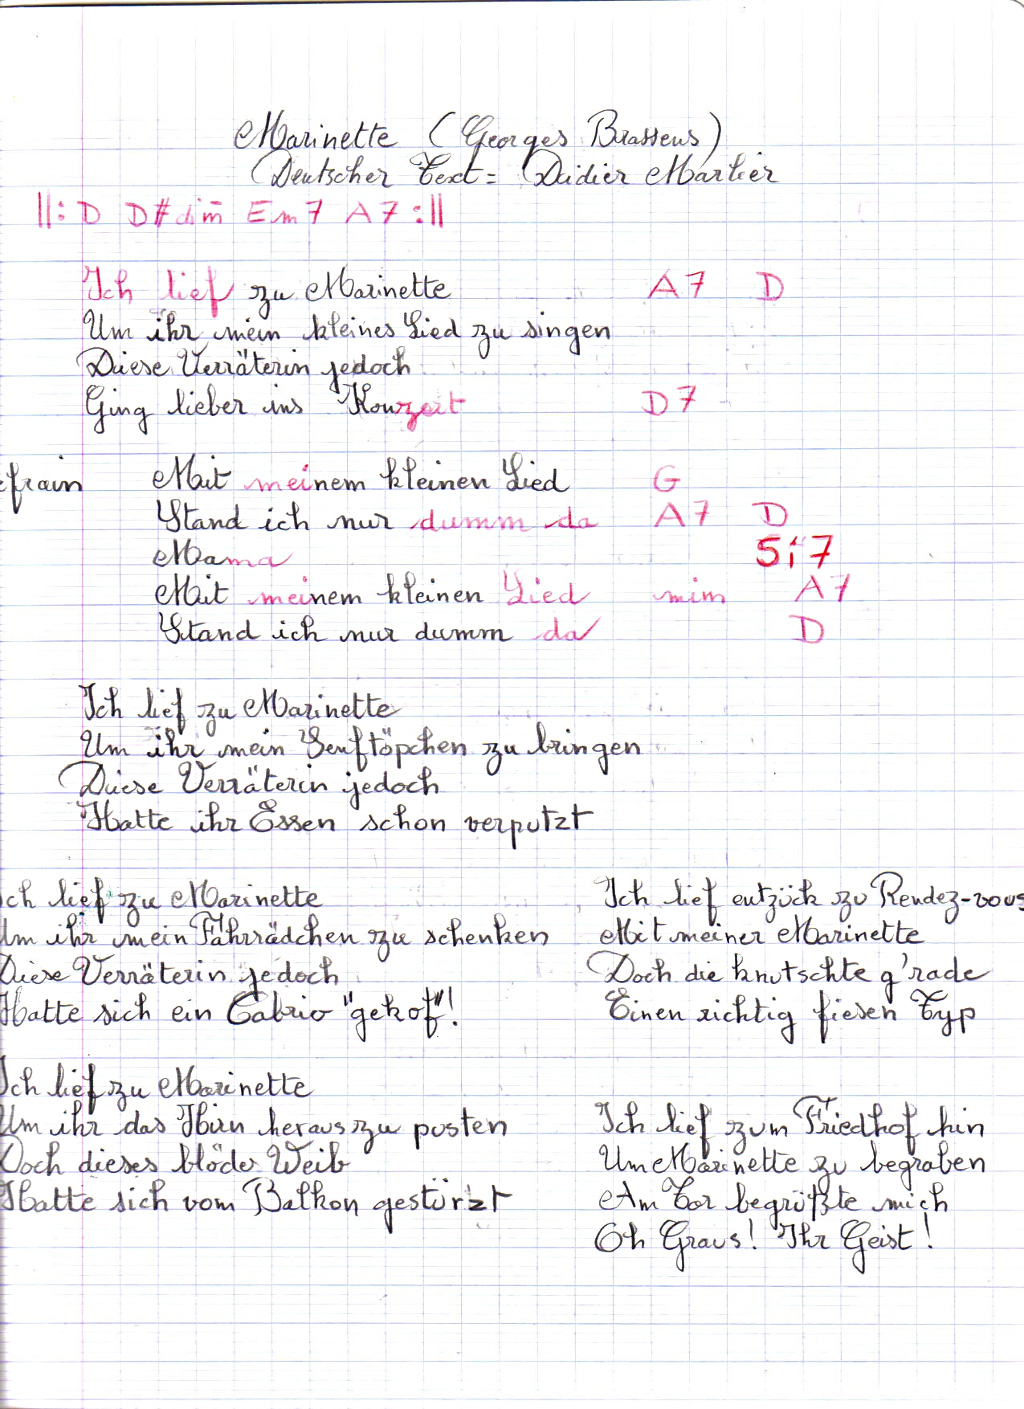 Marinette (Georges Brassens)
Deutscher Text = Didier Marlier
||: D D#dim Em7 A7 :||
Ich lief zu Marinette A7 D
Um ihr mein kleines Lied zu singen
Diese Verräterin jedoch
Ging lieber ins Konzert D7
efrain Mit meinem kleinen Lied G
Stand ich nur dumm da A7 D
Mama Si7
Mit meinem kleinen Lied mim A7
Stand ich nur dumm da D
Ich lief zu Marinette
Um ihr mein Senftöpchen zu bringen
Diese Verräterin jedoch
Hatte ihr Essen schon verputzt
Ich lief zu Marinette
Um ihr mein Fahrrädchen zu schenken
Diese Verräterin jedoch
Hatte sich ein Cabrio "gekof"!
Ich lief zu Marinette
Um ihr das Hirn herauszu pusten
Doch dieses blöde Weib
Hatte sich vom Balkon gestürzt
Ich lief entzück zu Rendez-vous
Mit meiner Marinette
Doch die knutschte g'rade
Einen richtig fiesen Typ
Ich lief zum Friedhof hin
Um Marinette zu begraben
Am Tor begrüßte mich
Oh Graus! Ihr Geist!